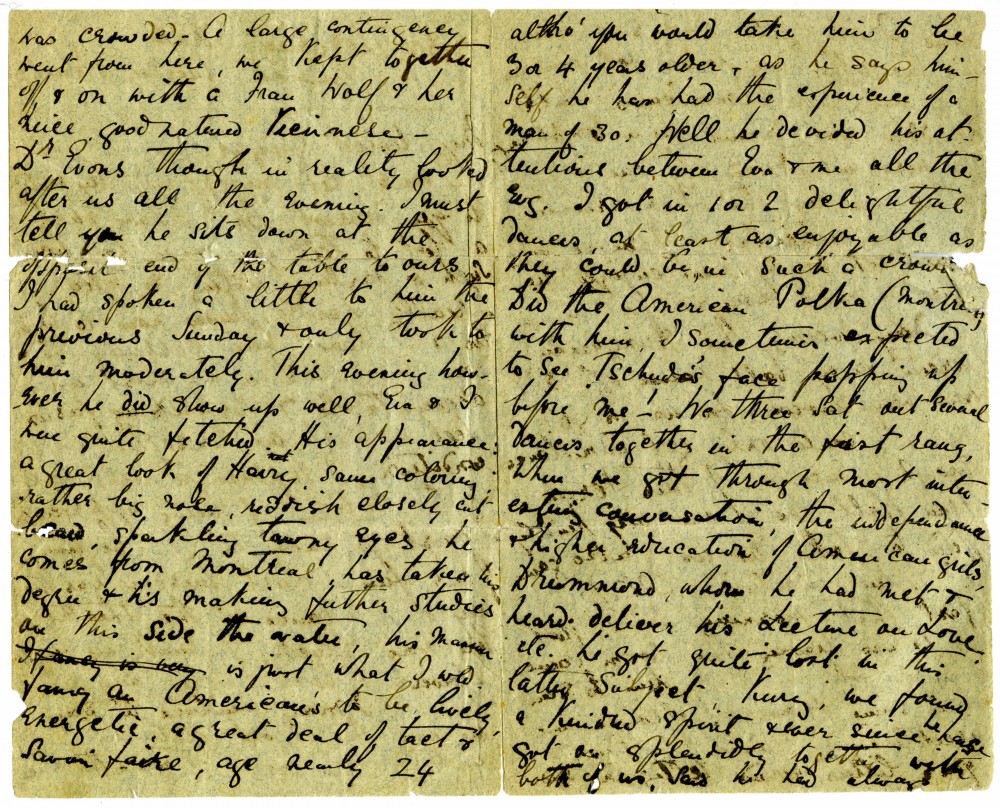 was crowded - A large contingency
went from here, we kept together
off & on with a Frau Wolf & her
neice, goodnatured Viennese -
Dr Evons though in reality looked
after us all the Evening. I must
tell you he sits down at the
opposite end of the table to ours
I had spoken a little to him the
previous Sunday & only took to
him moderately. This Evening how-
ever he did show up well, Eva & I
were quite fetched. His appearance:
a great look of Harry, same coloring
rather big nose, reddish closely cut
beard, sparkling tawny eyes, he
comes from Montreal, has taken his
Degree & is making futher studies
on this side the water, his manner
I fancy is very is just what I wld
fancy an American's to be, lively,
Energetic, a great deal of tact &
Savoir faire, age nearly 24
altho' you would take him to be
3 or 4 years older, as he says him-
self he has had the experience of a
man of 30. Well he devided his at-
tentions between Eva & me all the
Evg. I got in 1 or 2 delightful
Dances, at least as enjoyable as
they could be, in such a crowd
Did the American Polka (Montreux)
with him, I sometimes expected
to see Tschudi's face popping up
before me! We three sat out several
Dances together in the first rang,
When we got through most inter
esting conversation, the independance
& higher education of American girls,
Drummond, whom he had met &
heard deliver his Lecture on Love.
etc. he got quite lost in this
latter subject, we found
a kindred spirit & ever since he has
got on splendidly together with
both of us, said he had always